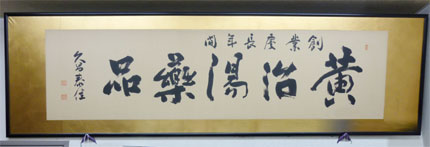 創業慶長年間
黄治湯藥品